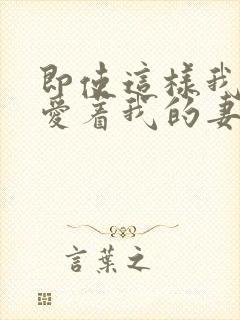 即使這樣我
愛着我的妻
言葉之